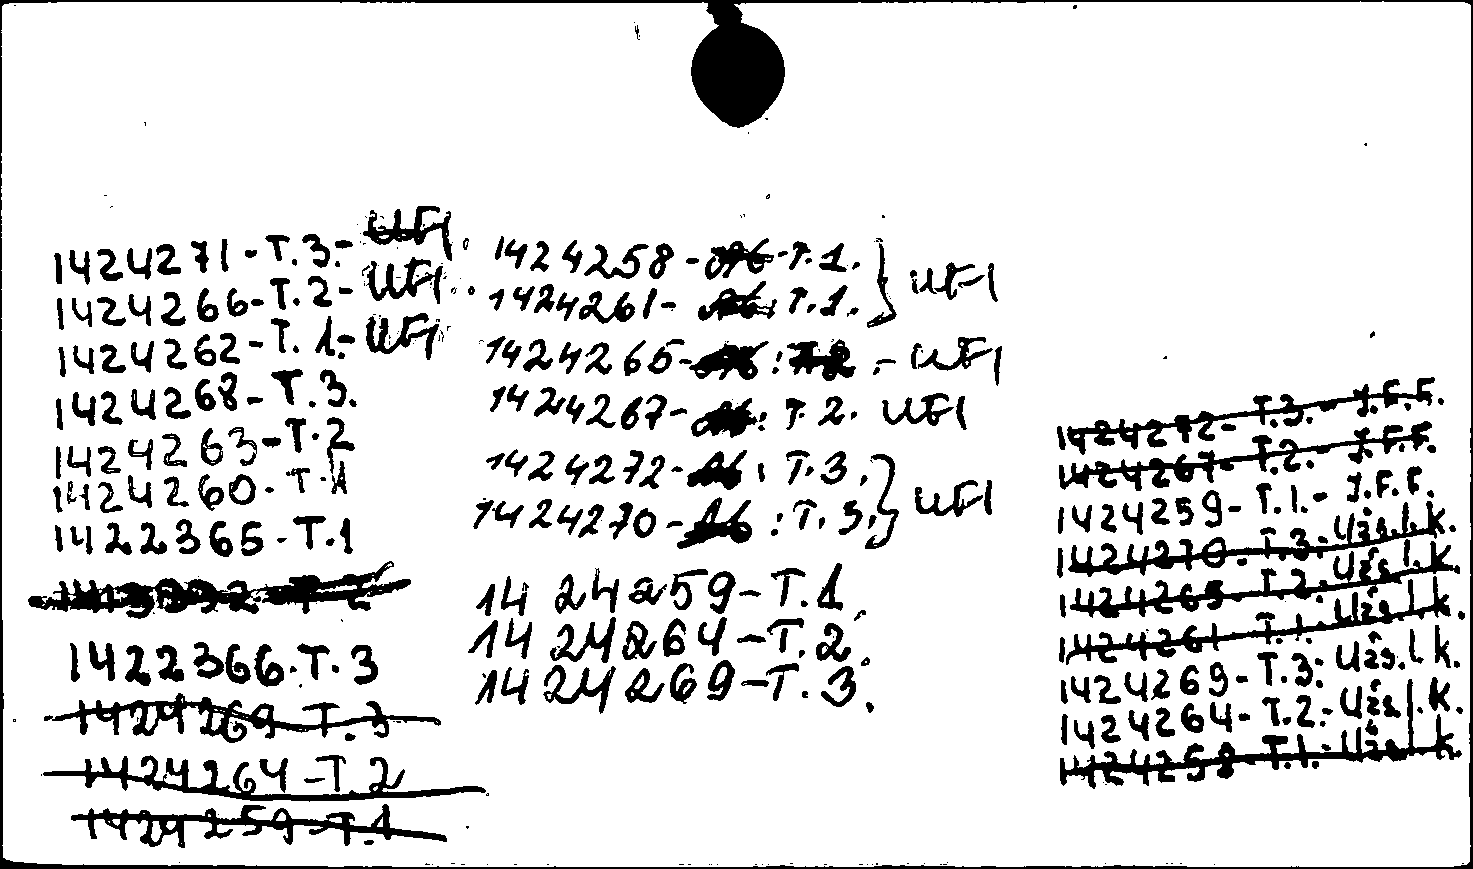 1424271-T.3.- UFI
1424266-T.2- UFI
1424262-T.1- UFI
1424268-T.3.
1424263-T.2
1424260-T.1
1422365-T.1
1422366.T.3
1424269-T.3
1424264-T.2
1424259-T.1
1424258- -T.1. } UFI
1424261- : T.1.
1424265- : .- UFI
1424267- : T.2. UFI
1424272- : T.3. } UFI
1424270- : T.3.
1424259-T.1.
1424264-T.2.
1424269-T.3.
1424272-T.3.- J.F.F.
1424267-T.2.- J.F.F.
1424259-T.1.- J.F.F.
1424270.T.3.-Užs.l.k.
1424265-T.2.-Užs.l.k.
1424261-T.1.-Užs.l.k.
1424269-T.3.-Užs.l.k.
1424264-T.2.-Užs.l.k.
1424258-T.1.-Užs.l.k.